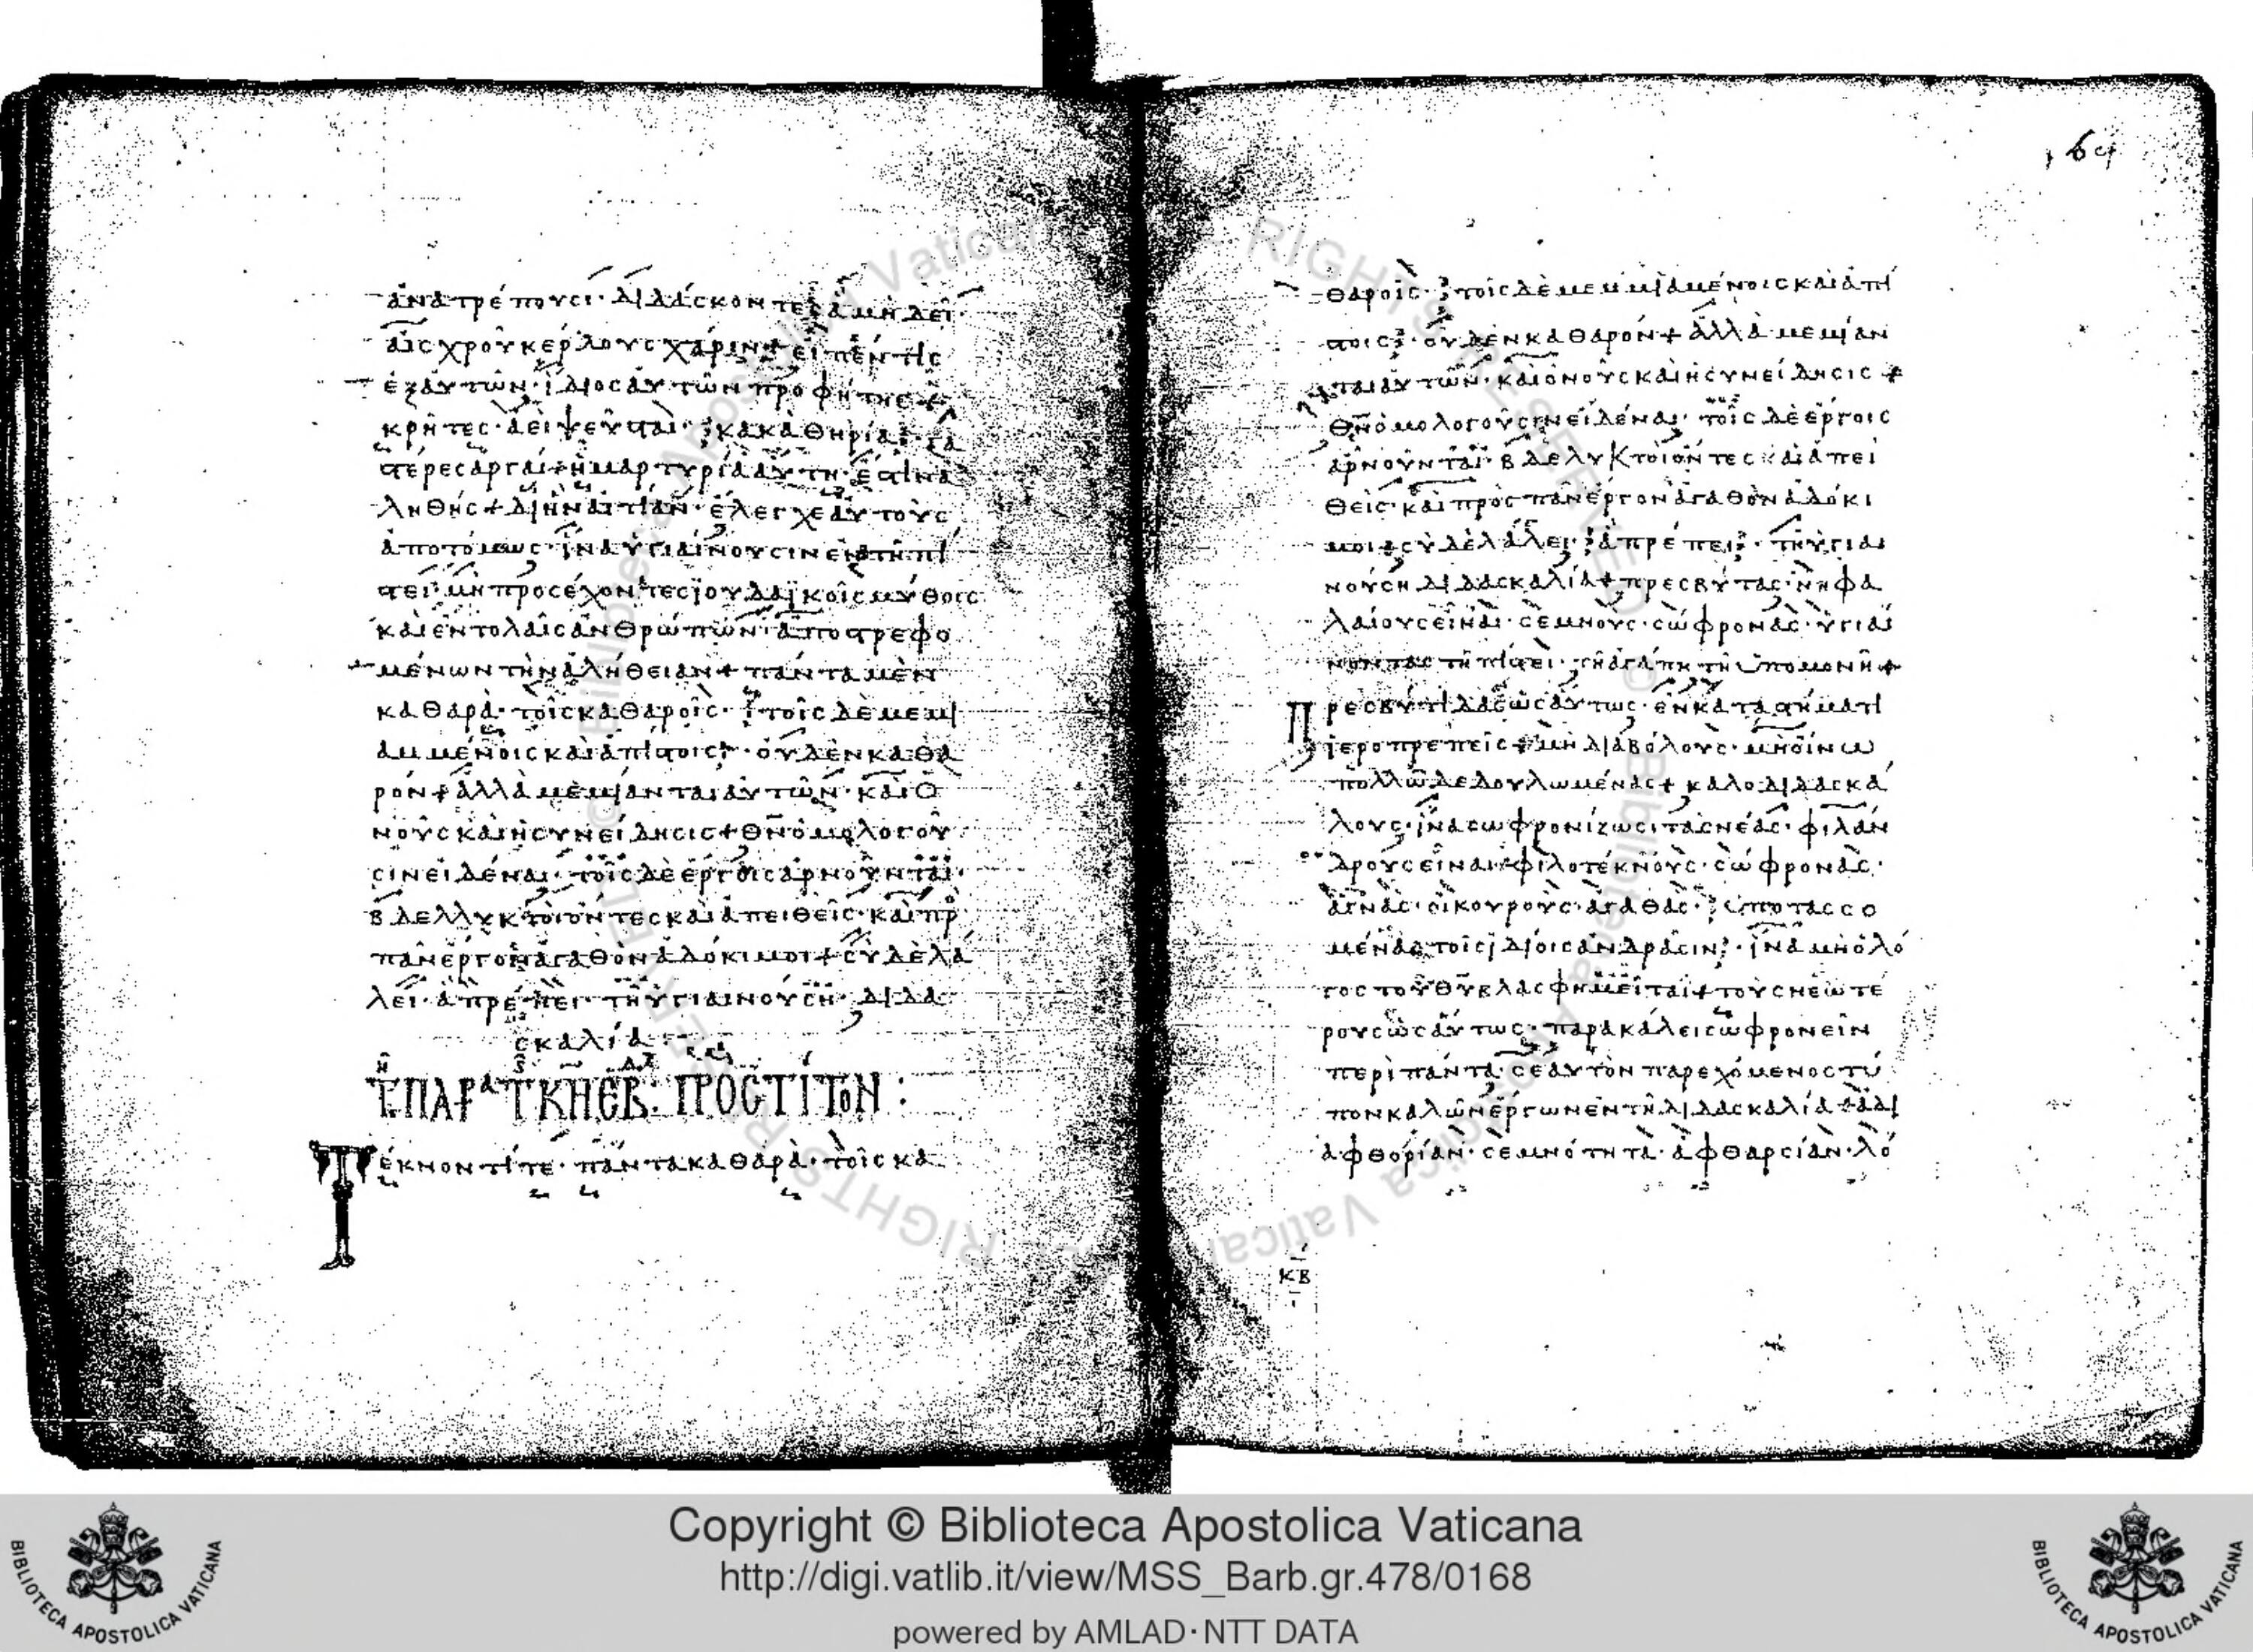 ἀνατρέπουσι· διδάσκοντες ἃ μὴ δεῖ·
αἰσχροῦ κέρδους χάριν + εἶπέν τις
ἐξ αὐτῶν· ἴδιος αὐτῶν προφήτης +
κρῆτες· ἀεὶ ψεῦσται· κακὰ θηρία· γα
στέρες ἀργαί + ἡ μαρτυρία αὕτη· ἐστὶν ἀ
ληθής + δι ἣν αἰτίαν· ἔλεγχε αὐτοὺς
ἀποτόμως· ἵνα ὑγιαίνουσιν ἐν τῇ πί
στει· μὴ προσέχοντες ἰουδαϊκοῖς μύθοις
καὶ ἐντολαῖς ἀνθρώπων· ἀποστρεφο
μένων τὴν ἀλήθειαν + πάντα μὲν
καθαρὰ· τοῖς καθαροῖς· τοῖς δὲ μεμι
αμμένοις καὶ ἀπίστοις· οὐδὲν καθα
ρόν + ἀλλὰ μεμίανται αὐτῶν· καὶ ὁ
νοῦς καὶ ἡ συνείδησις + θν ὁμολογοῦ
σιν εἰδέναι· τοῖς δὲ ἔργοις ἀρνοῦνται·
βδελλυκτοὶ ὄντες καὶ ἀπειθεῖς· καὶ πρ
πᾶν ἔργον ἀγαθὸν ἀδόκιμοι + σὺ δὲ λά
λει· ἃ πρέπει· τῇ ὑγιαινούσῃ· διδα
σκαλία
ΠΡΟΣ ΤΙΤΟΝ :
Τέκνον τίτε· πάντα καθαρὰ· τοῖς κα
64
θαροῖς· τοῖς δὲ μεμιαμένοις καὶ ἀπί
στοις· οὐδὲν καθαρόν + ἀλλὰ μεμίαν
ται αὐτῶν· καὶ ὁ νοῦς καὶ ἡ συνείδησις +
θν ὁμολογοῦσιν εἰδέναι· τοῖς δὲ ἔργοις
ἀρνοῦνται· βδελυκτοὶ ὄντες καὶ ἀπει
θεῖς· καὶ πρὸς πᾶν ἔργον ἀγαθὸν ἀδόκι
μοι + σὺ δὲ λάλει· ἃ πρέπει· τῇ ὑγιαι
νούσῃ διδασκαλία + πρεσβύτας· νηφα
λαίους εἶναι· σεμνούς· σώφρονας· ὑγιαί
νοντας τῇ πίστει· τῇ ἀγάπῃ τῇ ὑπομονῇ +
Πρεσβύτιδας ὡσαύτως· ἐν καταστήματι
ἱεροπρεπεῖς + μὴ διαβόλους· μὴ οἴνω
πολλῶ δεδουλωμένας + καλοδιδασκά
λους· ἵνα σωφρονίζωσι τὰς νέας· φιλάν
δρους εἶναι + φιλοτέκνους· σώφρονας·
ἁγνάς· οἰκουρούς· ἀγαθάς· ὑποτασσο
μένας τοῖς ἰδίοις ἀνδράσιν· ἵνα μὴ ὁ λό
γος τοῦ θυ βλασφημεῖται + τοὺς νεωτέ
ρους ὡσαύτως· παρακάλει σωφρονεῖν
περὶ πάντα· σεαυτὸν παρεχόμενος τύ
πον καλῶν ἔργων ἐν τῇ διδασκαλία + ἀδι
αφθορίαν· σεμνότητα· ἀφθαρσίαν· λό
κβ
Copyright © Biblioteca Apostolica Vaticana
http://digi.vatlib.it/view/MSS_Barb.gr.478/0168
powered by AMLAD·NTT DATA
BIBLIOTECA APOSTOLICA VATICANA
BIBLIOTECA APOSTOLICA VATICANA